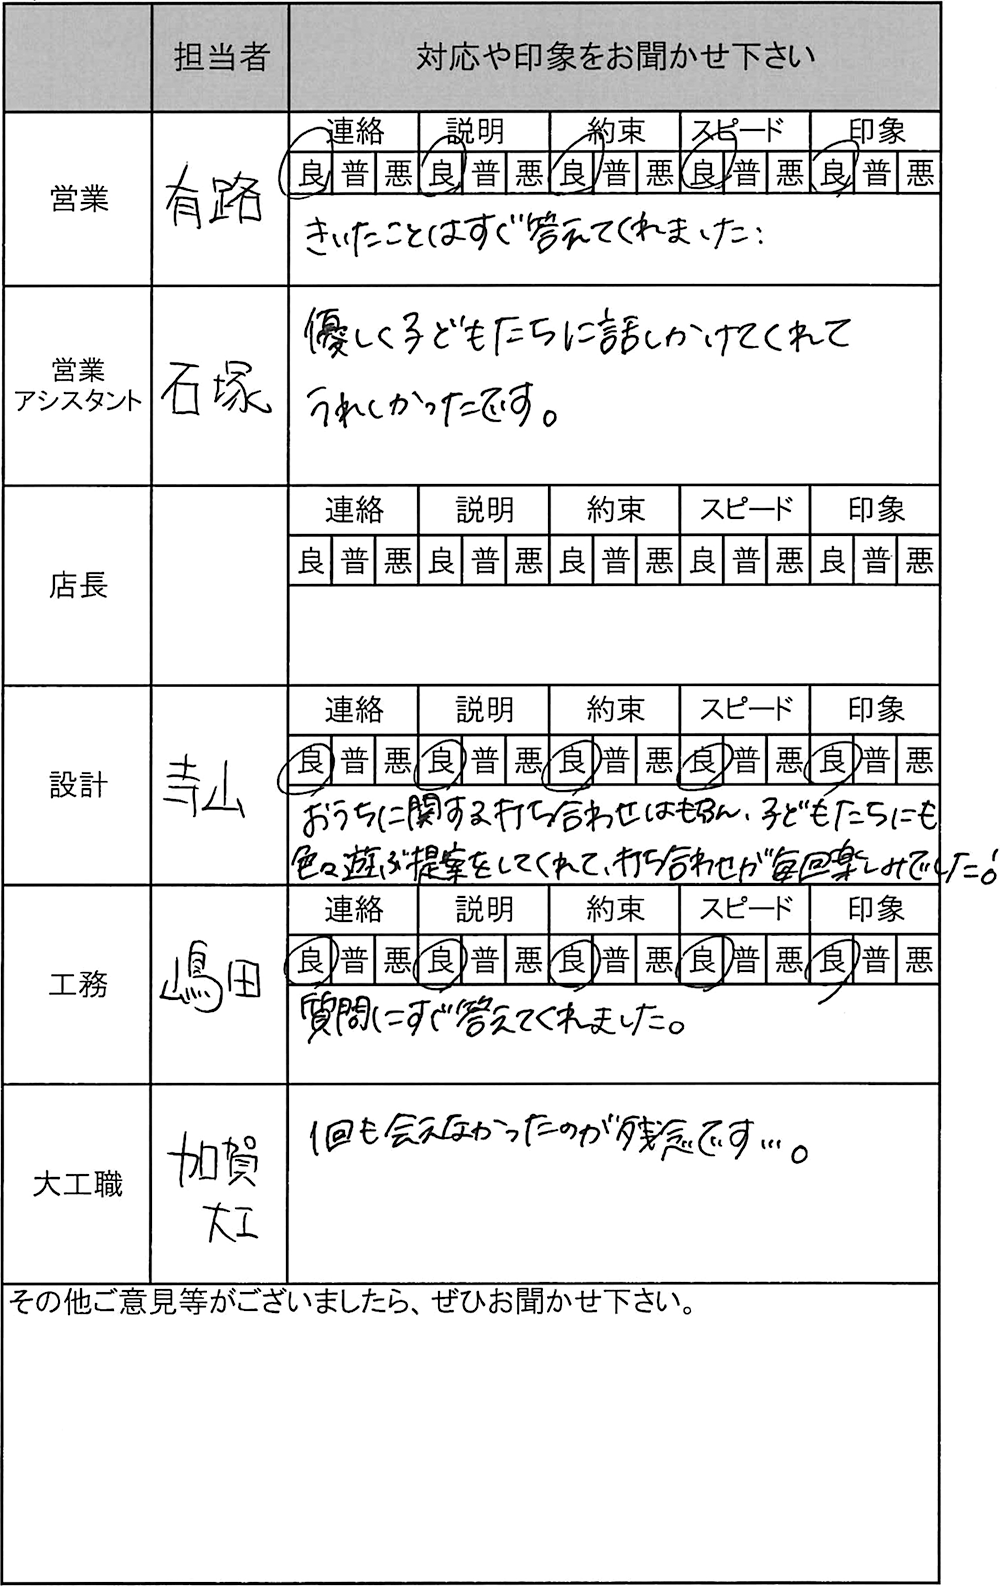 担当者 対応や印象をお聞かせ下さい
連絡 説明 約束 スピード 印象
良 普 悪 良 普 悪 良 普 悪 良 普 悪 良 普 悪
営業 有路
きいたことはすぐ答えてくれました:
優しく子どもたちに話しかけてくれて
営業
アシスタント 石塚
うれしかったです。
連絡 説明 約束 スピード 印象
良 普 悪 良 普 悪 良 普 悪 良 普 悪 良 普 悪
店長
連絡 説明 約束 スピード 印象
良 普 悪 良 普 悪 良 普 悪 良 普 悪 良 普 悪
設計 寺山
おうちに関する打ち合わせはもちろん、子どもたちにも
色々遊ぶ提案をしてくれて、打ち合わせが毎回楽しみでした!
連絡 説明 約束 スピード 印象
良 普 悪 良 普 悪 良 普 悪 良 普 悪 良 普 悪
工務 嶋田
質問にすぐ答えてくれました。
1回も会えなかったのが残念です…。
大工職 加賀
大工
その他ご意見等がございましたら、ぜひお聞かせ下さい。